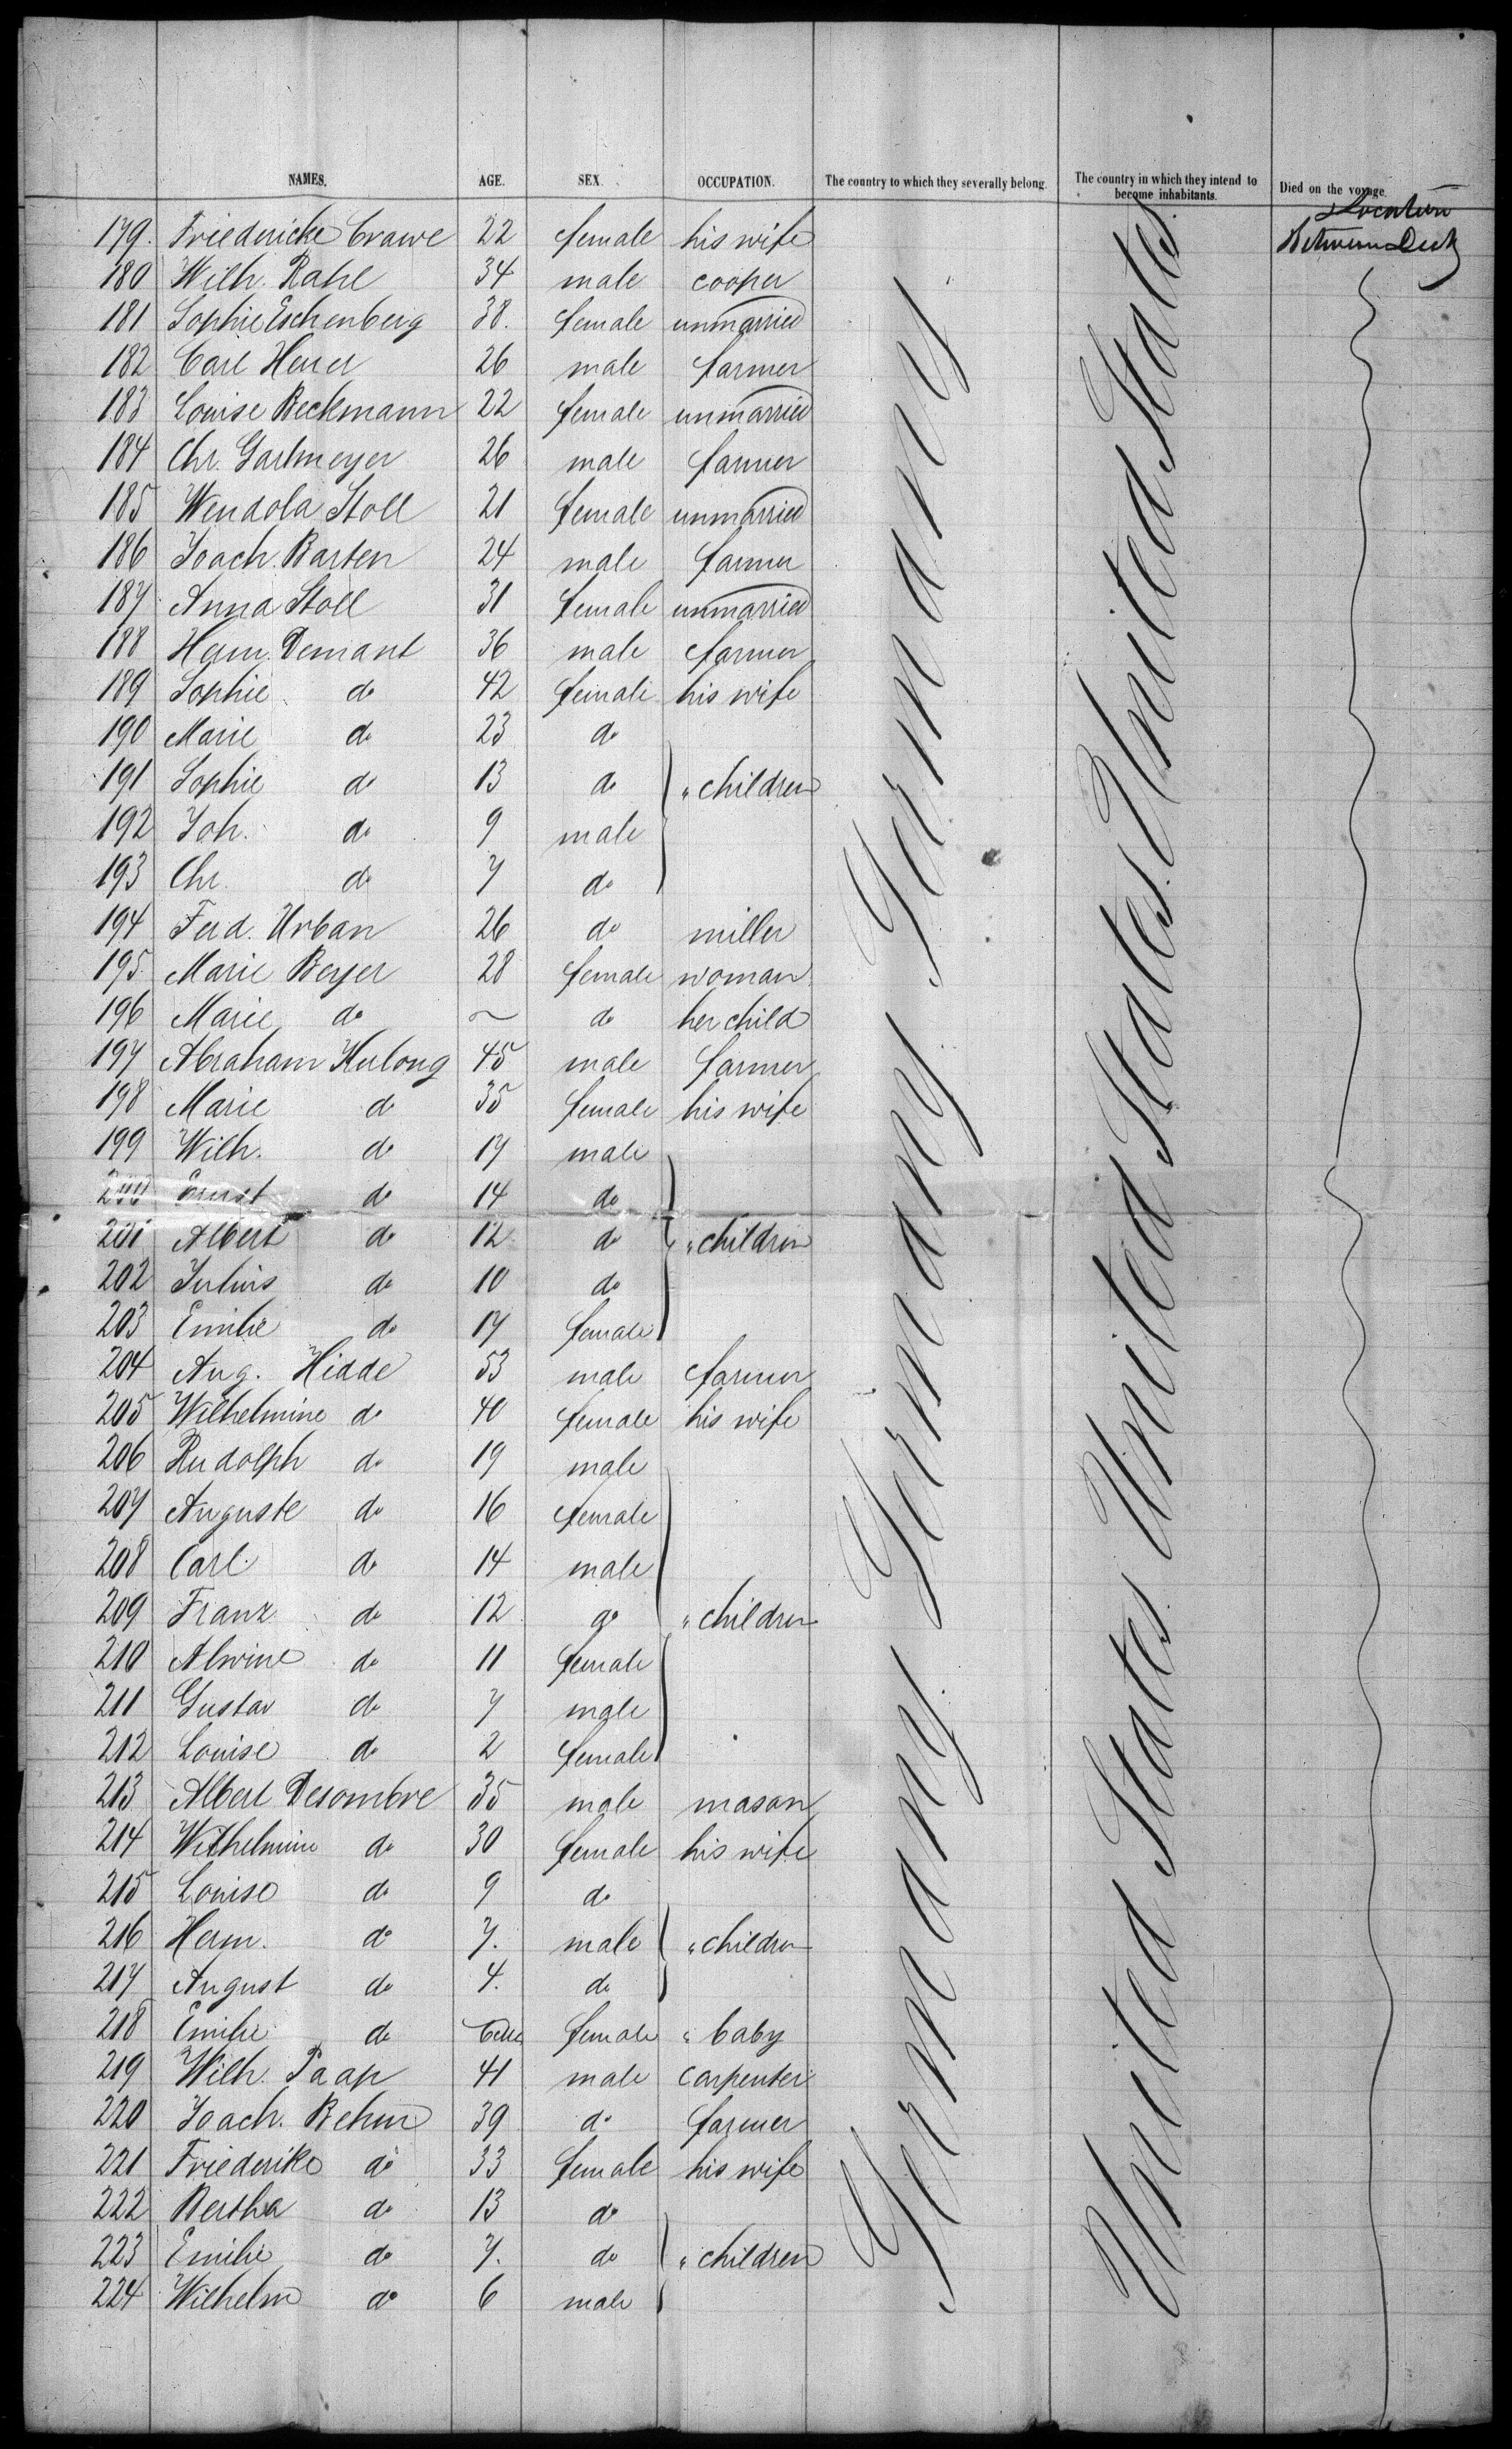 NAMES. AGE. SEX. OCCUPATION. The country to which they severally belong. The country in which they intend to become inhabitants. Died on the voyage.
Location
Between Deck
179. Friedericke Crawe 22 female his wife
180 Wilh. Rahl 34 male cooper
181 Sophie Eschenberg 38. female unmarried
182 Carl Heuer 26 male farmer
183 Louise Beckmann 22 female unmarried
184 Chr. Garlmeyer 26 male farmer
185 Wendola Stoll 21 female unmarried
186 Joach. Barten 24 male farmer
187 Anna Stoll 31 female unmarried
188 Herm. Demant 36 male farmer
189 Sophie do 42 female his wife
190 Marie do 23 do
191 Sophie do 13 do " children
192 Joh. do 9 male
193 Chr. do 7 do
194 Ferd. Urban 26 do miller
195 Marie Beyer 28 female woman
196 Marie do ~ do her child
197 Abraham Hulong 45 male farmer
198 Marie do 35 female his wife
199 Wilh. do 17 male
200 Ernst do 14 do
201 Albert do 12 do " children
202 Julius do 10 do
203 Emilie do 17 female
204 Aug. Hidde 53 male farmer
205 Wilhelmine do 40 female his wife
206 Rudolph do 19 male
207 Auguste do 16 female
208 Carl. do 14 male
209 Franz do 12 do " children
210 Alwine do 11 female
211 Gustav do 7 male
212 Louise do 2 female
213 Albert Desombre 35 male mason
214 Wilhelmine do 30 female his wife
215 Louise do 9 do
216 Herm. do 7. male " children
217 August do 4. do
218 Emilie do female " baby
219 Wilh. Paap 41 male carpenter
220 Joach. Behm 39 do farmer
221 Friederike do 33 female his wife
222 Bertha do 13 do
223 Emilie do 7. do " children
224 Wilhelm do 6 male
Germany. Germany. Germany. Germany.
United States United States United States. United States.